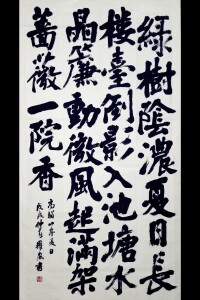 綠樹陰濃夏日長
樓臺倒影入池塘水
晶簾動微風起滿架
薔薇一院香
高駢山亭夏日
戊戌仲